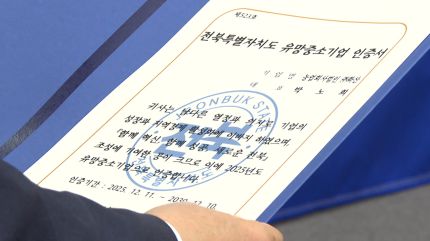 전북특별자치도 유망중소기업 인증서
기 업 명 농업회사법인
대 표 박 노 희
귀사는 남다른 열정과 의지로 기업의
성장과 지역경제 활성화에 이바지 하였으며
함께 혁신, 함께 성공, 새로운 전북,
조성에 기여한 공이 크므로 이에 2025년도
유망중소기업으로 인증합니다.
인증기간 : 2025. 12. 11. ~ 2030. 12. 10.
JEONBUK STATE
전북특별자치도